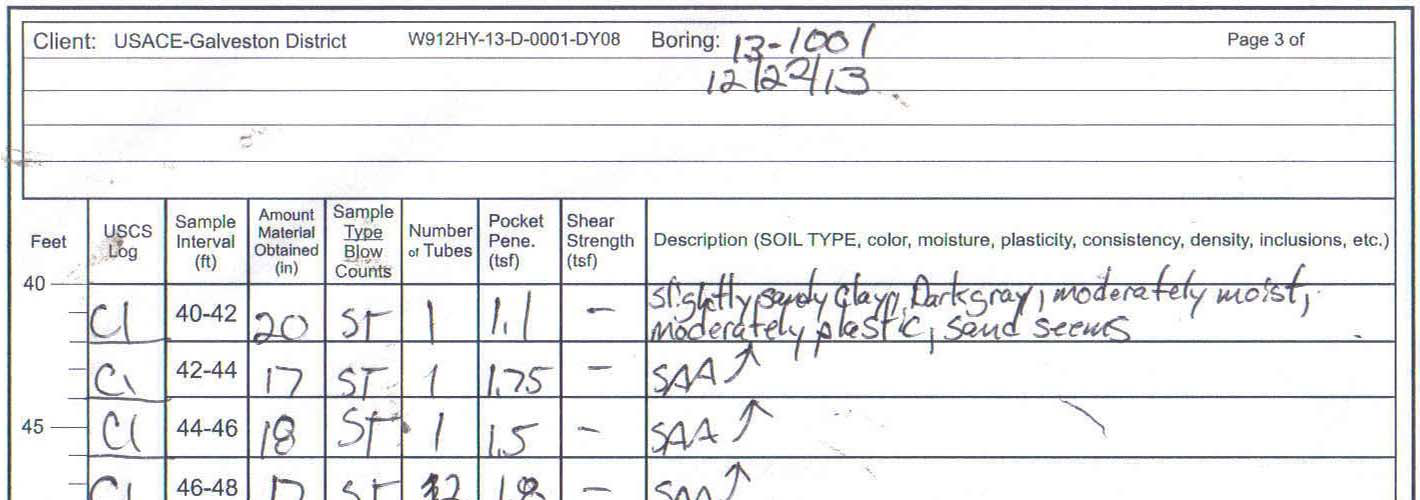 Client: USACE-Galveston District W912HY-13-D-0001-DY08 Boring: 13-1001 Page 3 of
12/22/13
Feet USCS Log Sample Interval (ft) Amount Material Obtained (in) Sample Type Blow Counts Number of Tubes Pocket Pene. (tsf) Shear Strength (tsf) Description (SOIL TYPE, color, moisture, plasticity, consistency, density, inclusions, etc.)
40
Cl 40-42 20 ST 1 1.1 – slightly sandy clay, Dark gray, moderately moist,
moderately plastic, sand seems
Cl 42-44 17 ST 1 1.75 – SAA ↑
45 Cl 44-46 18 ST 1 1.5 – SAA ↑
Cl 46-48 17 ST 2 1.8 – SAA ↑